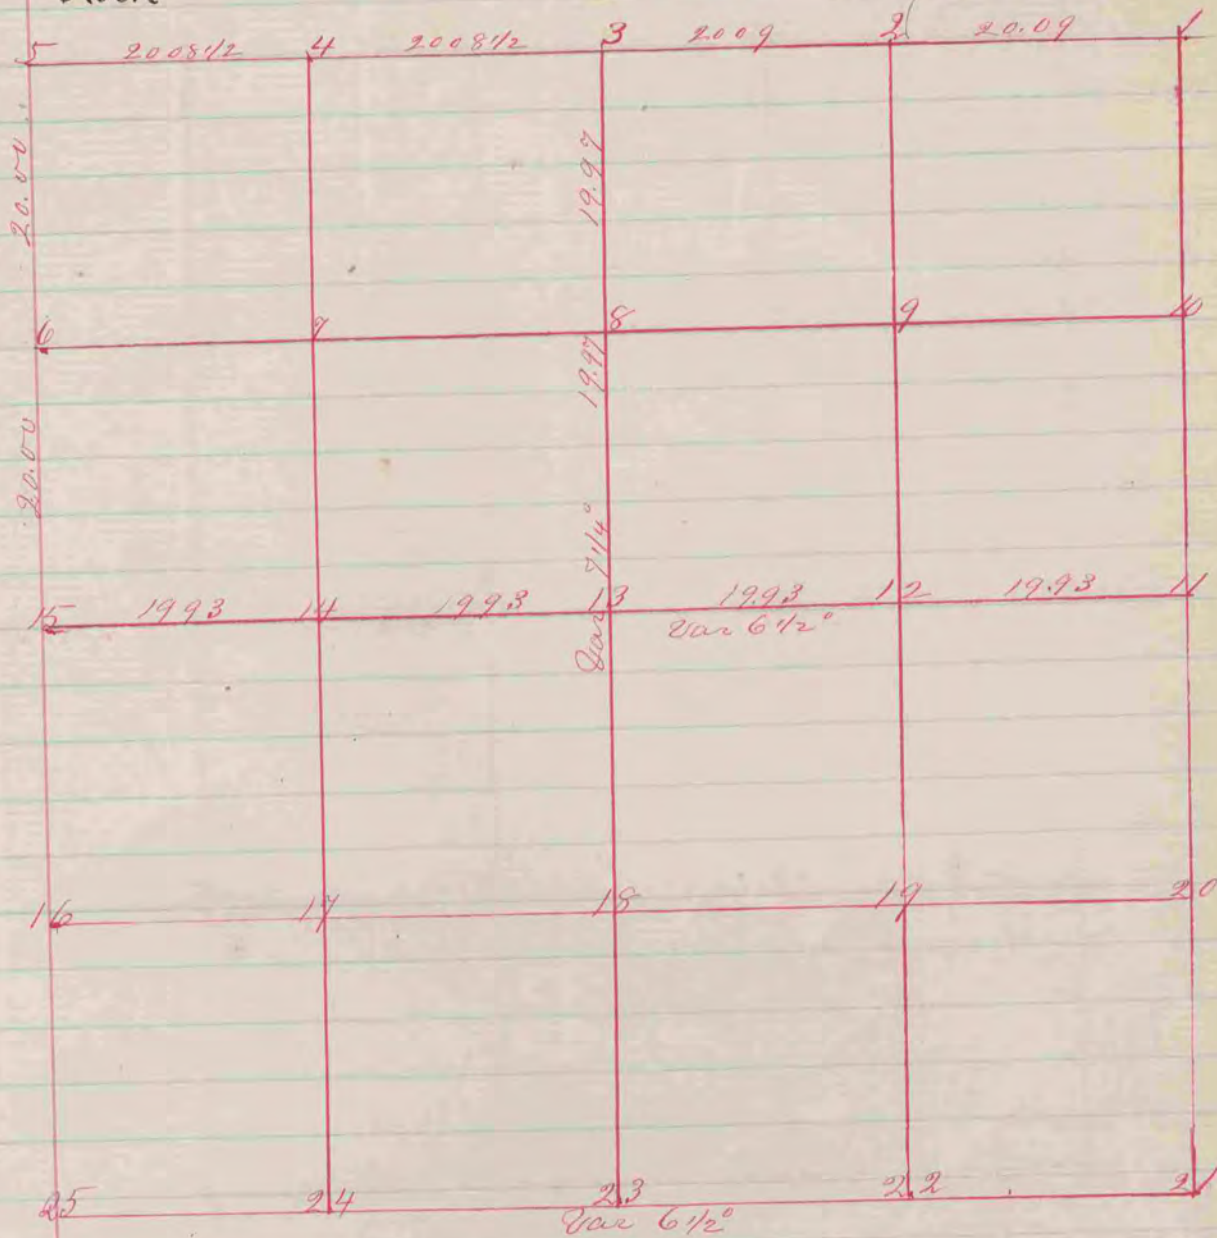 5 2008 1/2 4 2008 1/2 3 2009 2 20.09 1
20.00
19.97
6 7 8 9 10
20.00
19.97
Var 7 1/4°
15 1993 14 1993 13 19.93 12 19.93 11
Var 6 1/2°
16 17 18 19 20
25 24 23 22 21
Var 6 1/2°